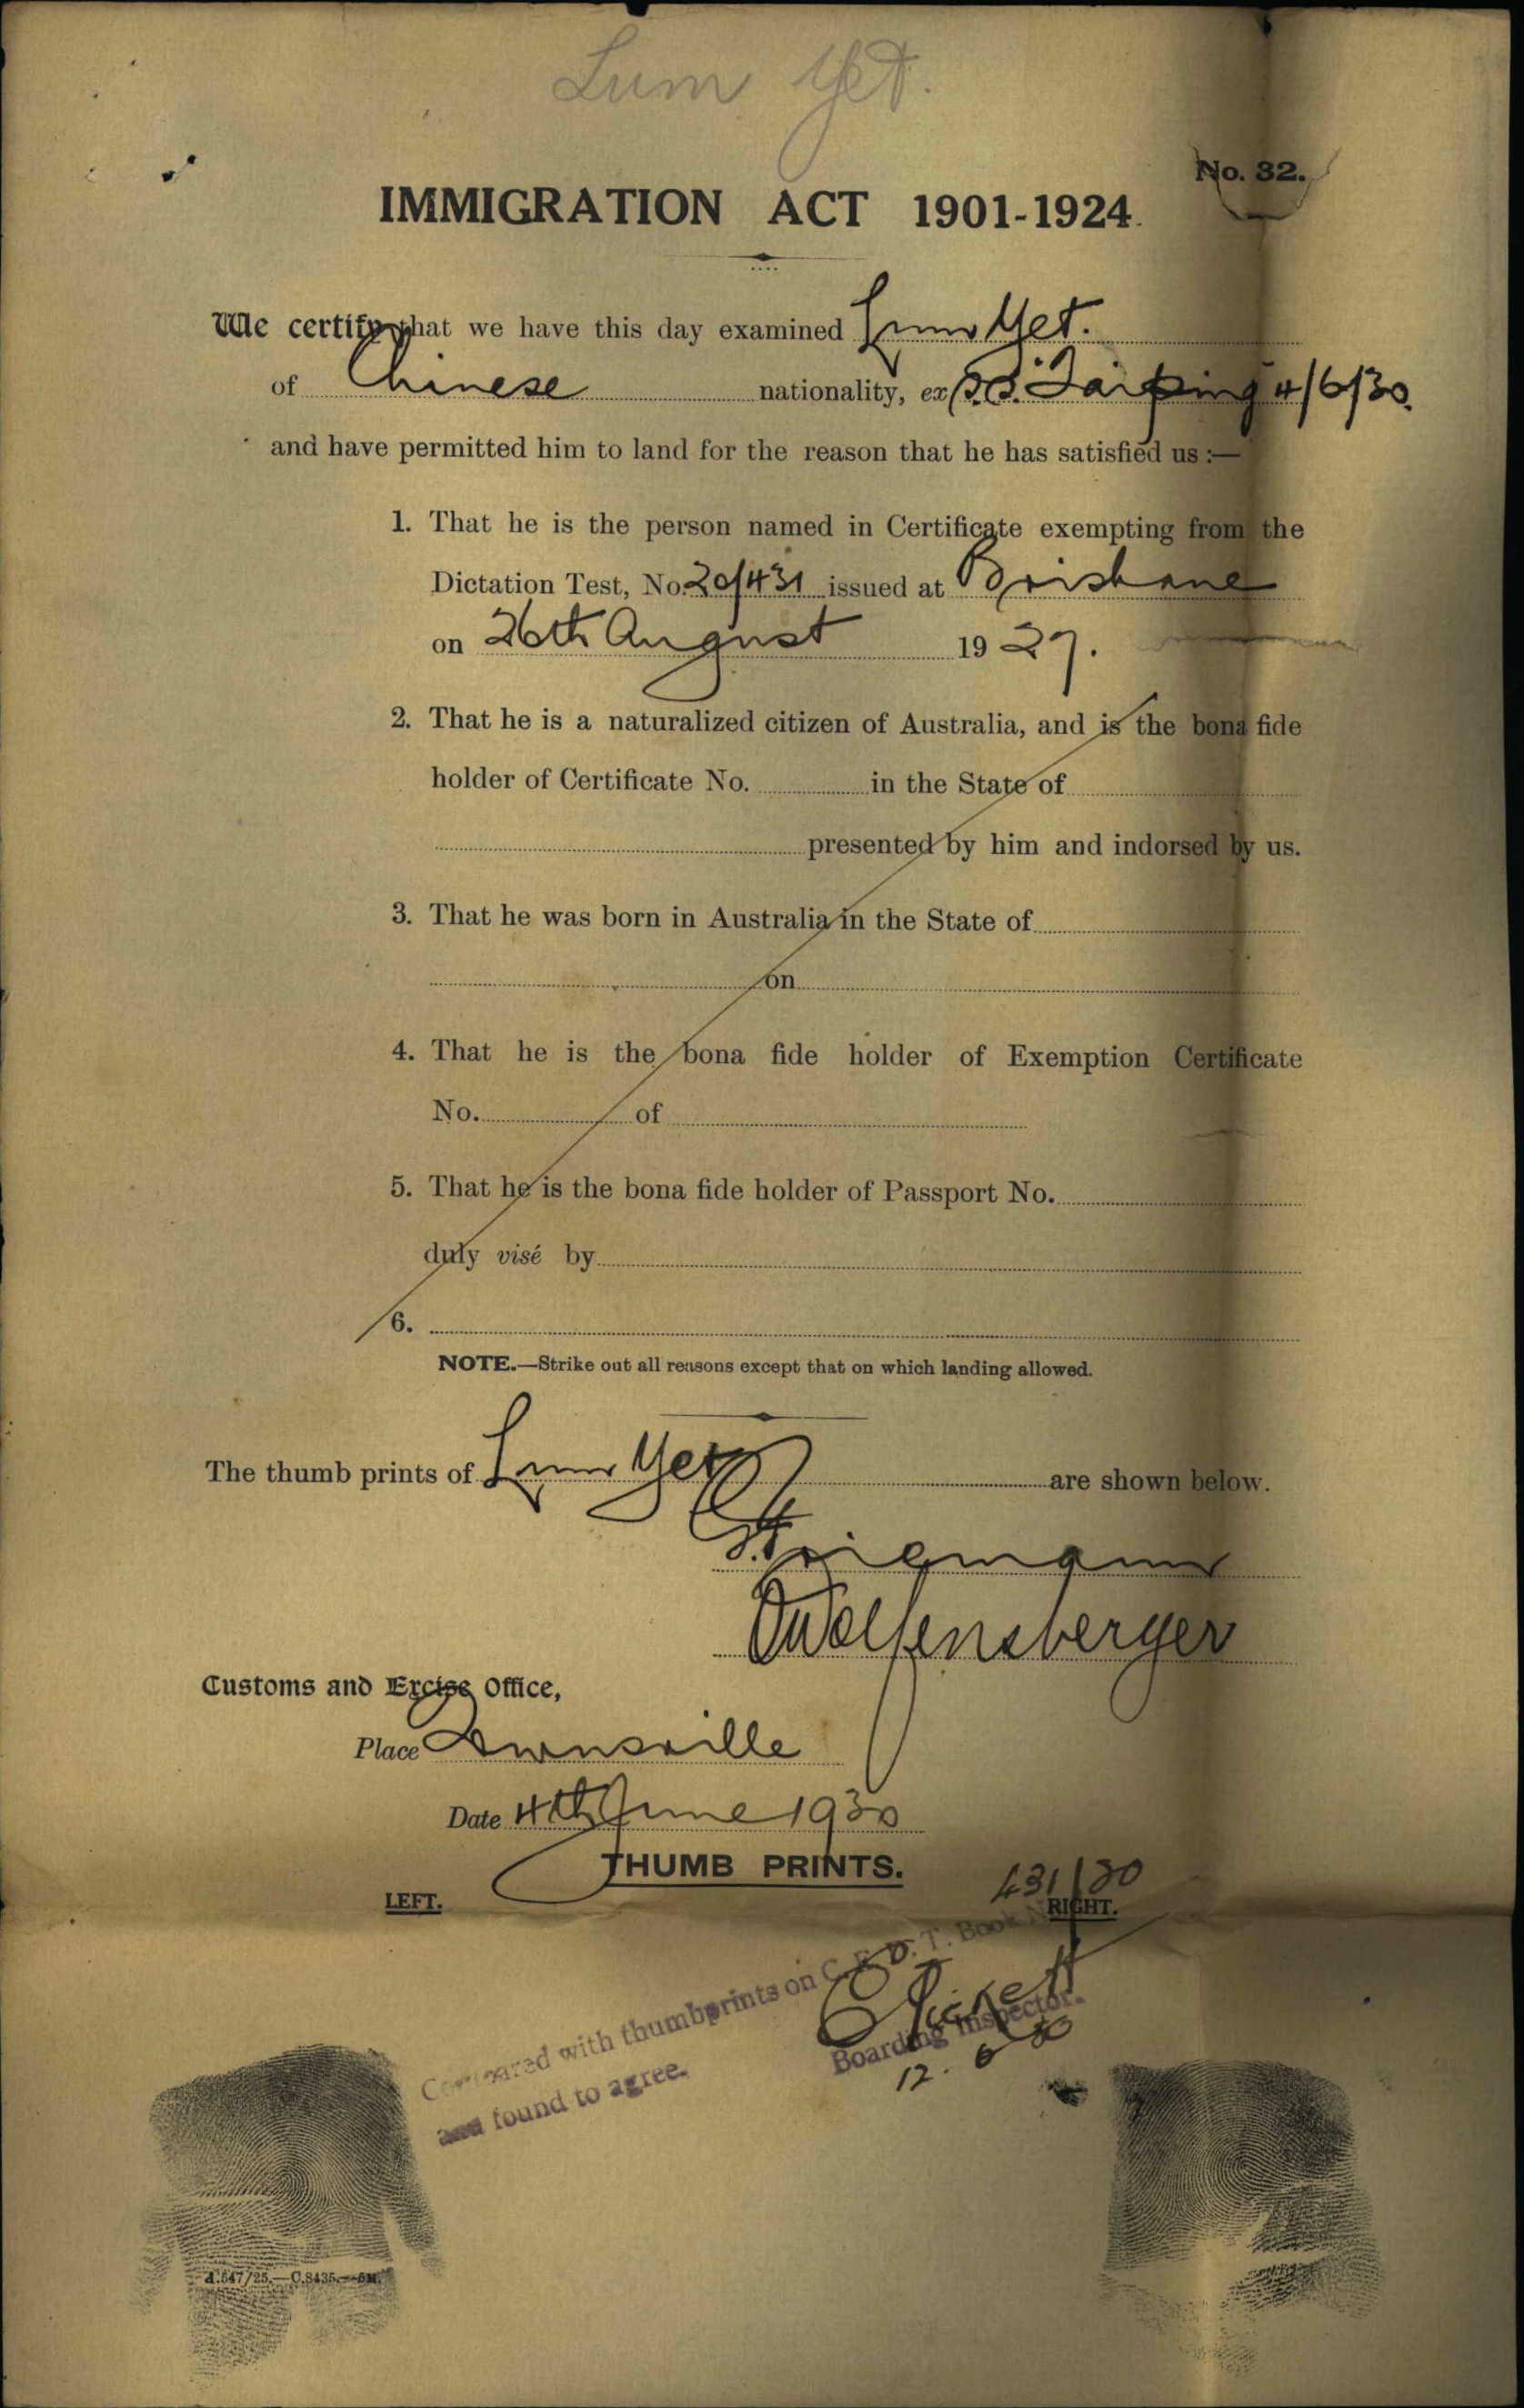 Lum Yet.
No. 32.
IMMIGRATION ACT 1901-1924.
We certify that we have this day examined Lum Yet.
of Chinese nationality, ex S.S. Taiping 4/6/30.
and have permitted him to land for the reason that he has satisfied us :—
1. That he is the person named in Certificate exempting from the
Dictation Test, No. 20/431 issued at Brisbane
on 26th August 1927.
2. That he is a naturalized citizen of Australia, and is the bona fide
holder of Certificate No. in the State of
presented by him and indorsed by us.
3. That he was born in Australia in the State of
on
4. That he is the bona fide holder of Exemption Certificate
No. of
5. That he is the bona fide holder of Passport No.
duly visé by
6.
NOTE.—Strike out all reasons except that on which landing allowed.
The thumb prints of Lum Yet are shown below.
Wolfensberger
Customs and Excise Office,
Place Townsville
Date 4th June 1930
THUMB PRINTS.
431/30
LEFT. RIGHT.
Compared with thumbprints on C. E. D. T. Book
and found to agree.
Boarding Inspector.
12. 6 30
A.547/25.—C.8435.—5M.